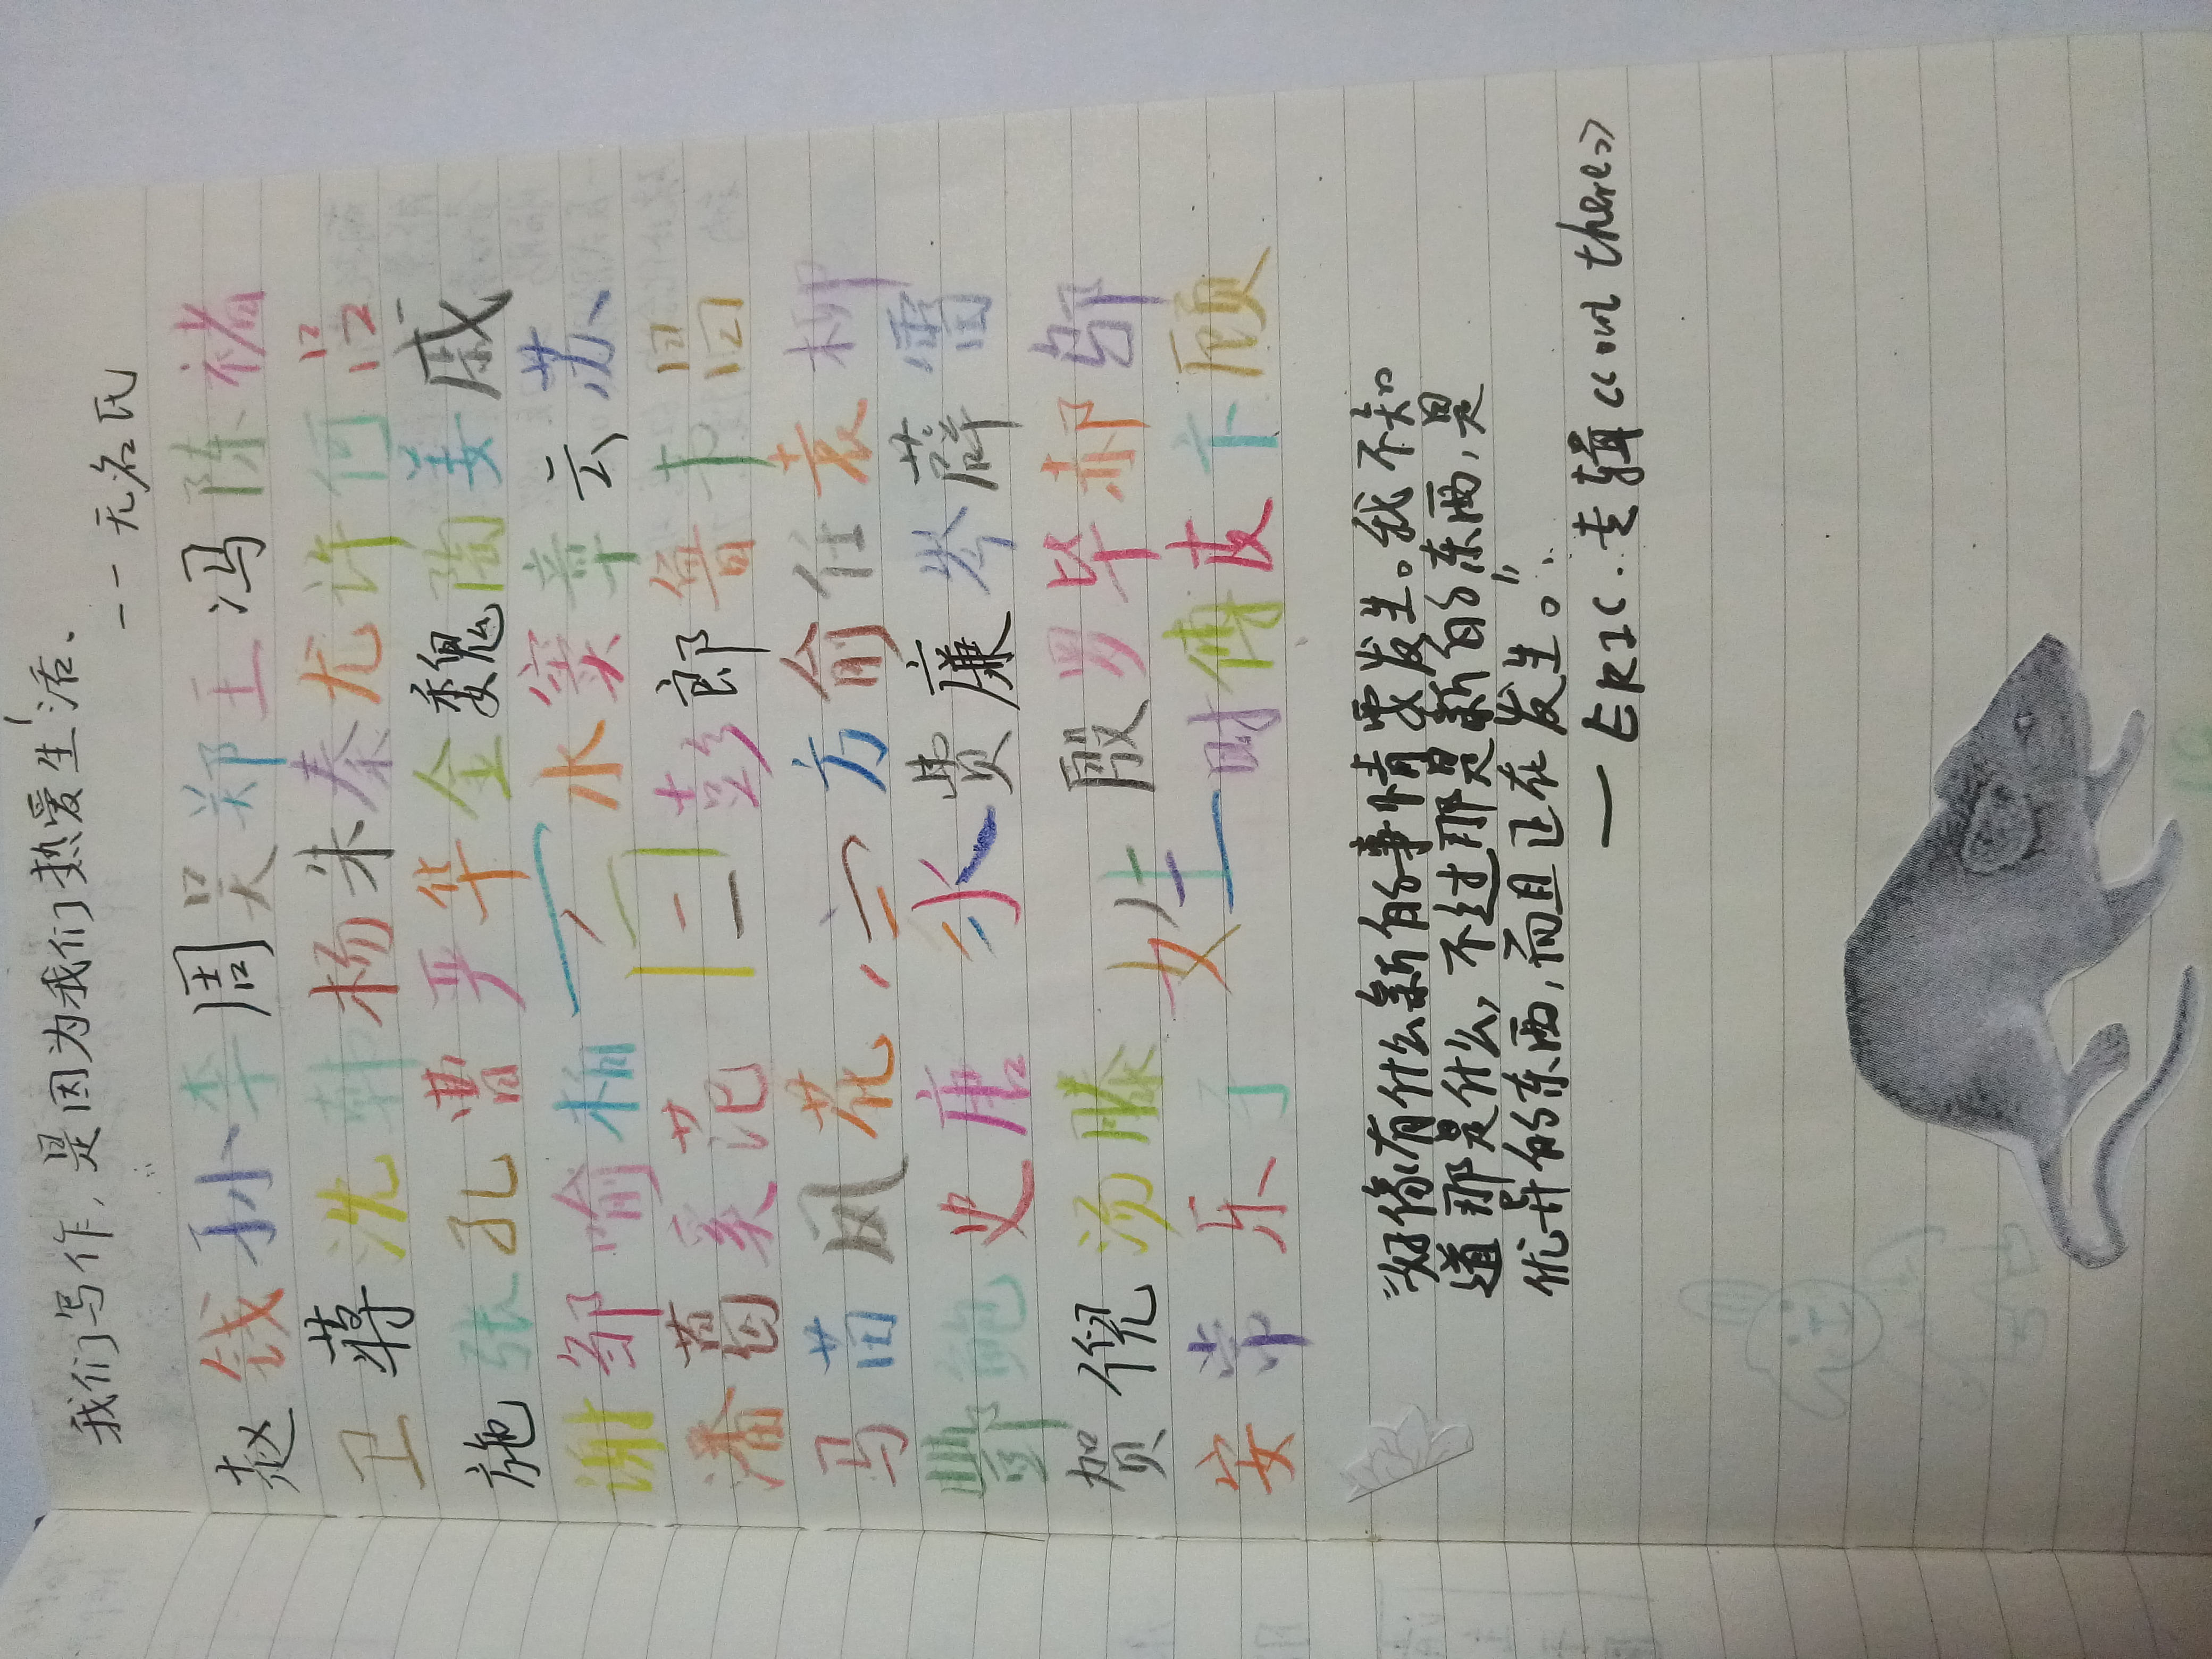 我们写作，是因为我们热爱生活、
——无名氏
赵钱孙李周吴郑王冯陈褚
卫蒋沈韩杨朱秦尤许何吕
施张孔曹严华金魏陶姜戚
谢邹喻柏水窦章云苏
百
潘葛奚范彭郎鲁韦昌
马苗凤花方俞任袁柳
家
酆鲍史唐费廉岑薛雷
贺倪汤滕殷罗毕郝
姓
安常乐于时傅皮卞顾
"好像有什么新的事情要发生。我不知
道那是什么，不过那是新的东西，是
优异的东西，而且正在发生。"
—ERIC.专辑《out there》